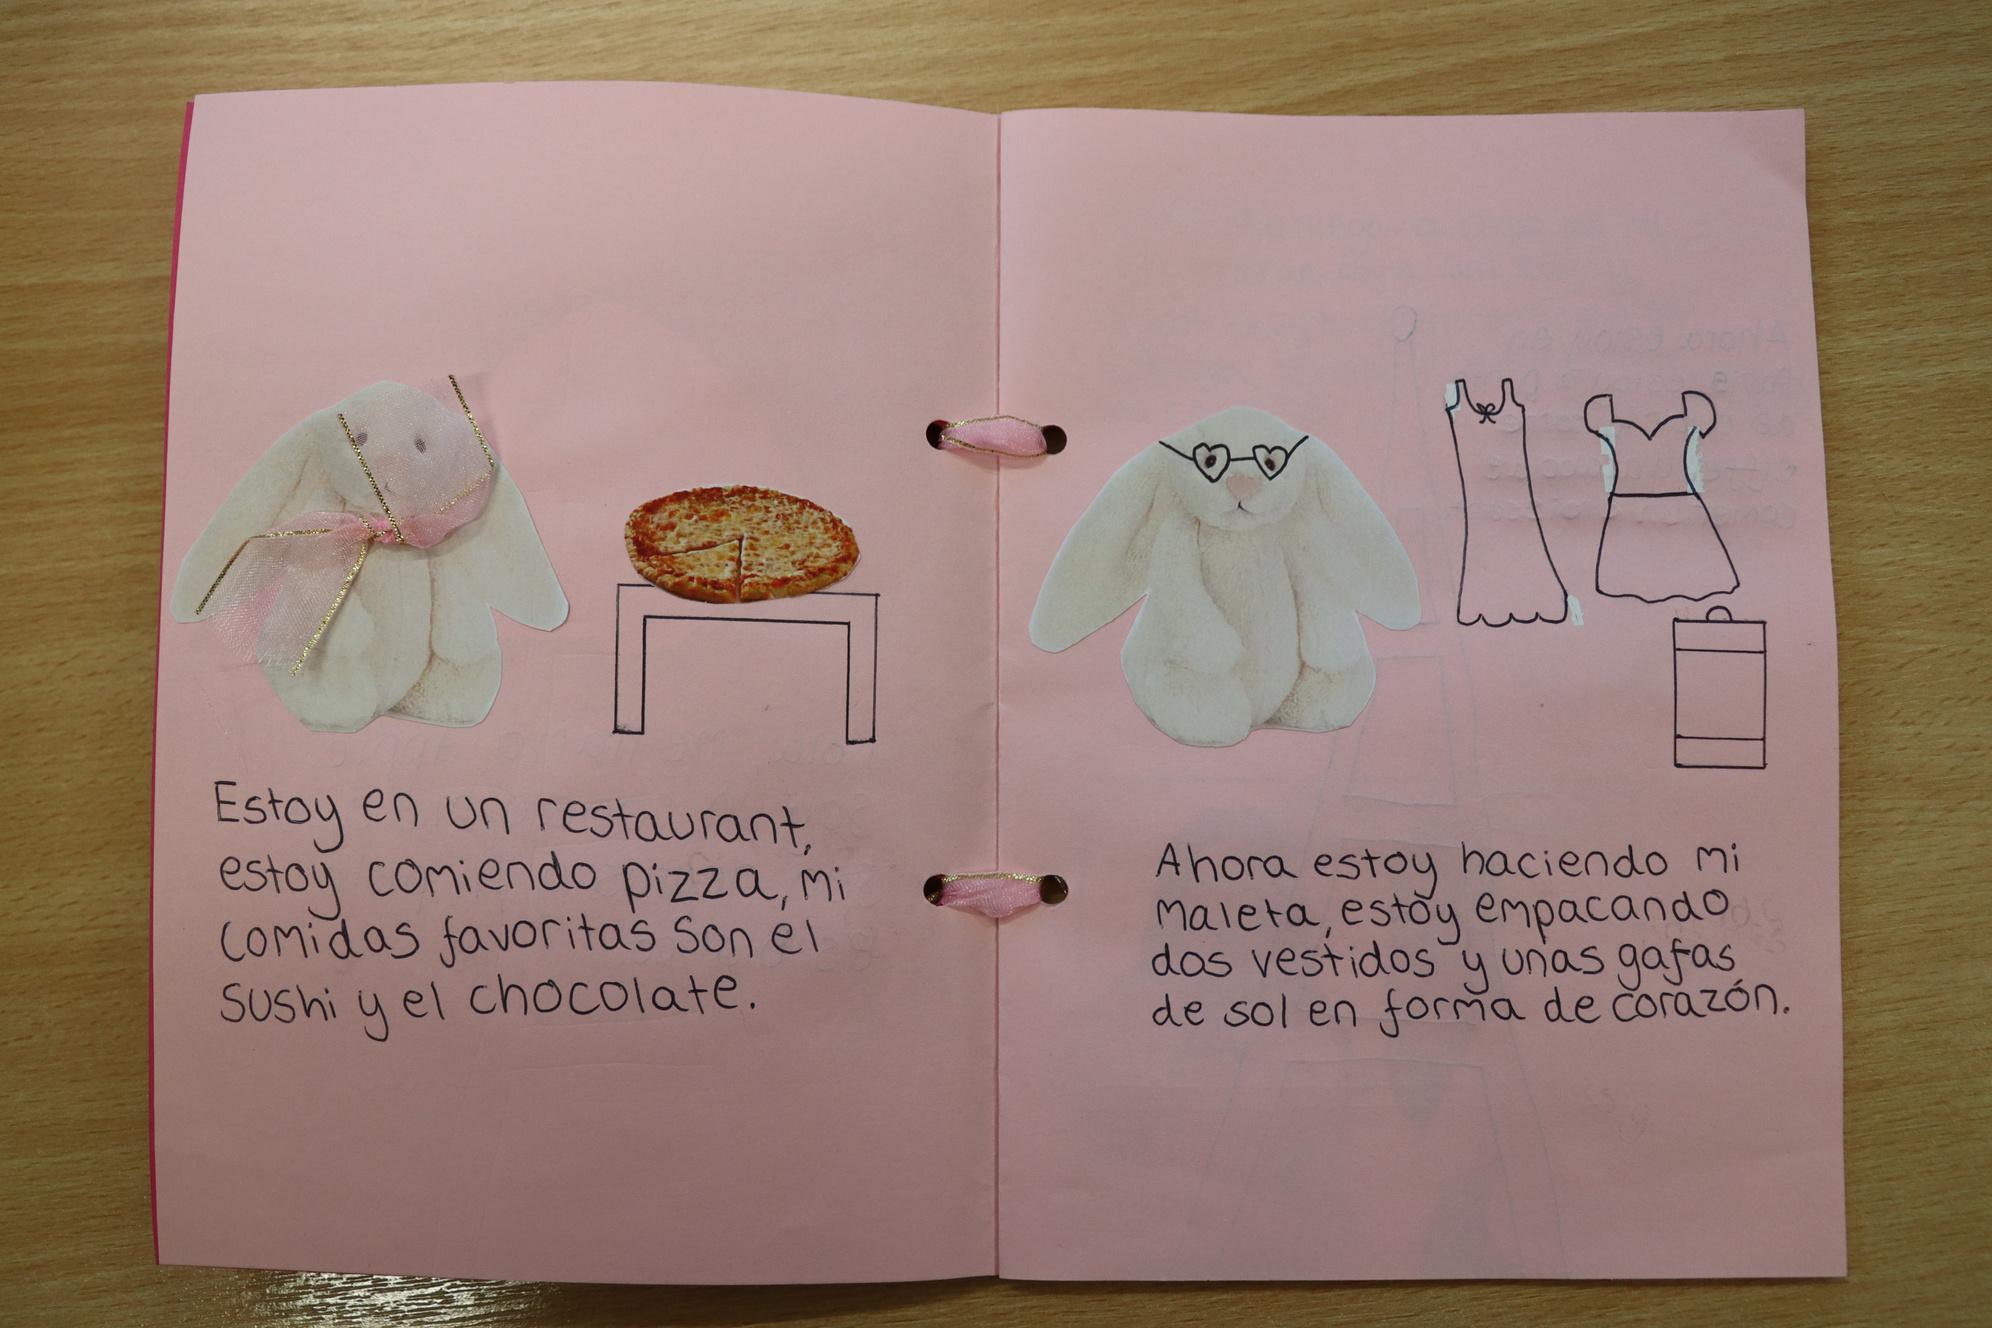 Estoy en un restaurant,
estoy comiendo pizza, mi
comidas favoritas son el
sushi y el chocolate.
Ahora estoy haciendo mi
maleta, estoy empacando
dos vestidos y unas gafas
de sol en forma de corazón.